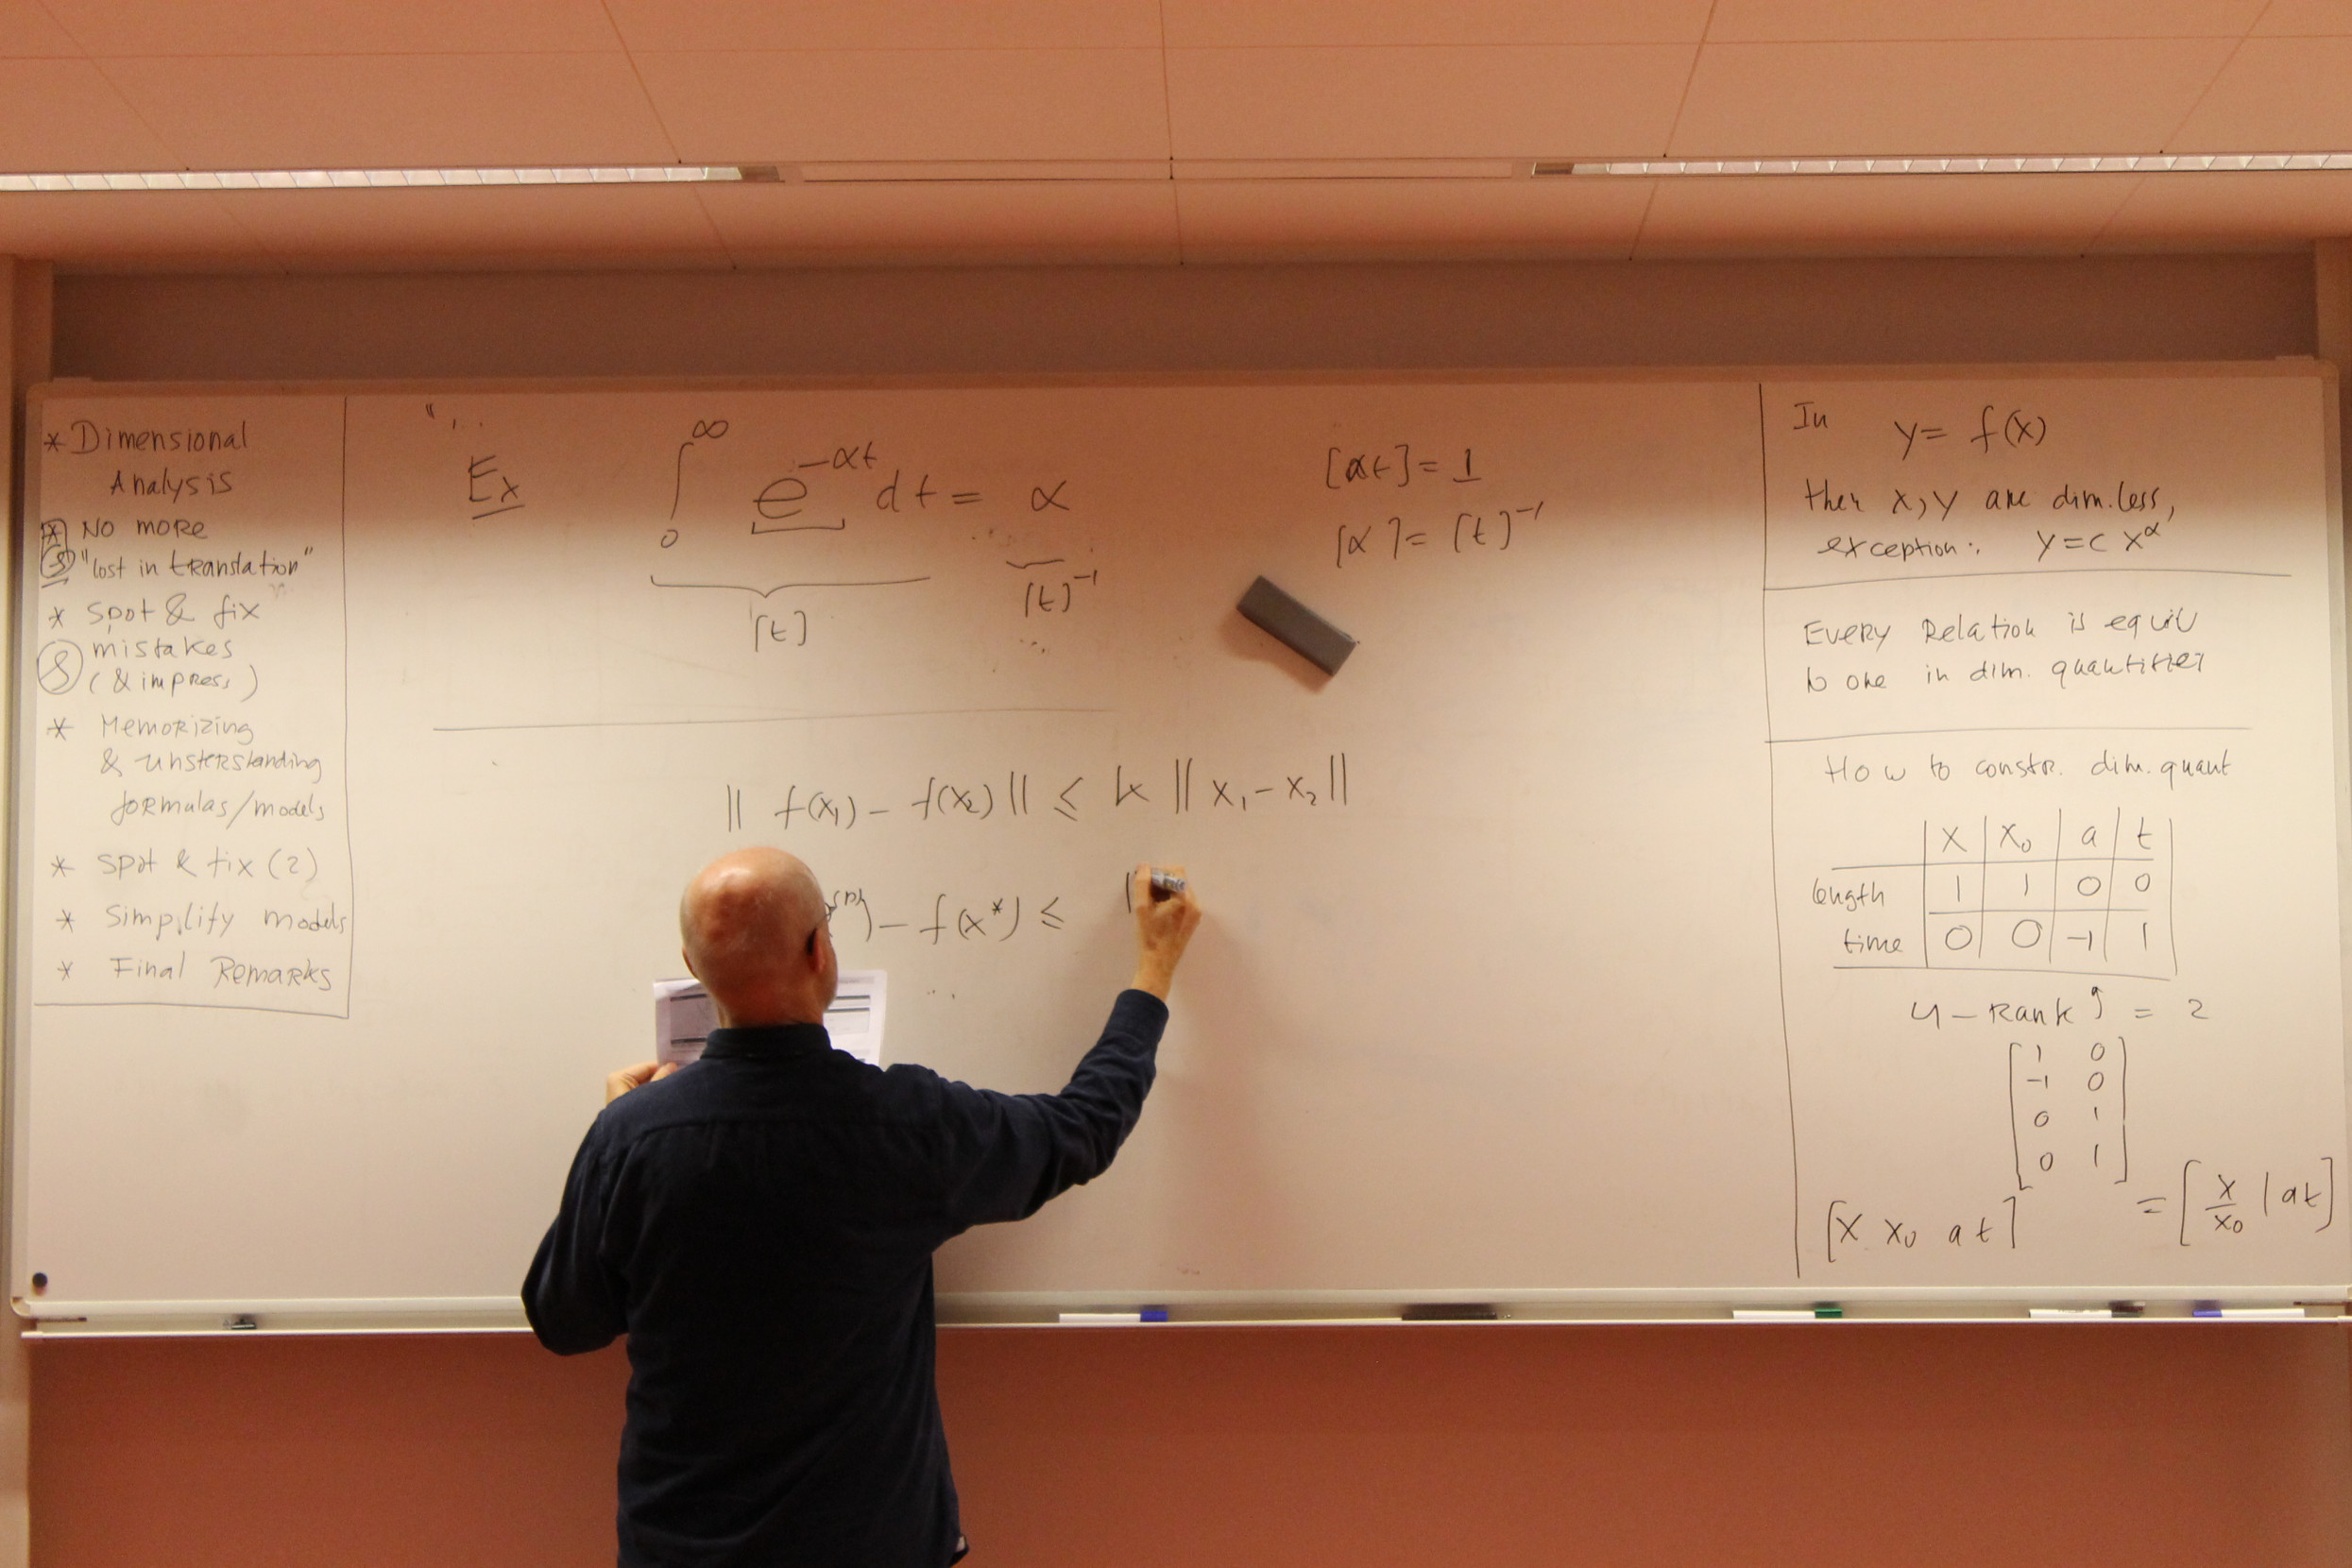 * Dimensional
Analysis
* NO MORE
"lost in translation"
* Spot & fix
mistakes
(& impress)
* Memorizing
& unsterstanding
formulas/models
* Spot & fix (2)
* Simplify models
* Final Remarks
Ex ∫₀^∞ e^{-αt} dt = α
[t] [t]⁻¹
[αt] = 1
[α] = [t]⁻¹
|| f(x₁) - f(x₂) || ≤ k || x₁ - x₂ ||
) - f(x*) ≤
In y = f(x)
then x, y are dim.less,
exception: y = c x^α
Every Relation is equiv
to one in dim. quantities
How to constr. dim. quant
x x₀ a t
length 1 1 0 0
time 0 0 -1 1
4 - Rank = 2
1 0
-1 0
0 1
0 1
[x x₀ a t] = [x/x₀ | at]